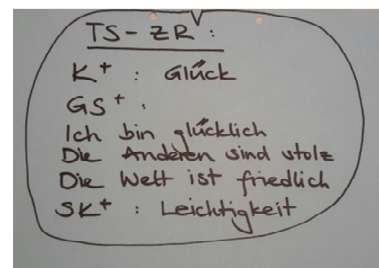 TS-ZR:
K+ : Glück
GS+ :
Ich bin glücklich
Die Anderen sind stolz
Die Welt ist friedlich
SK+ : Leichtigkeit